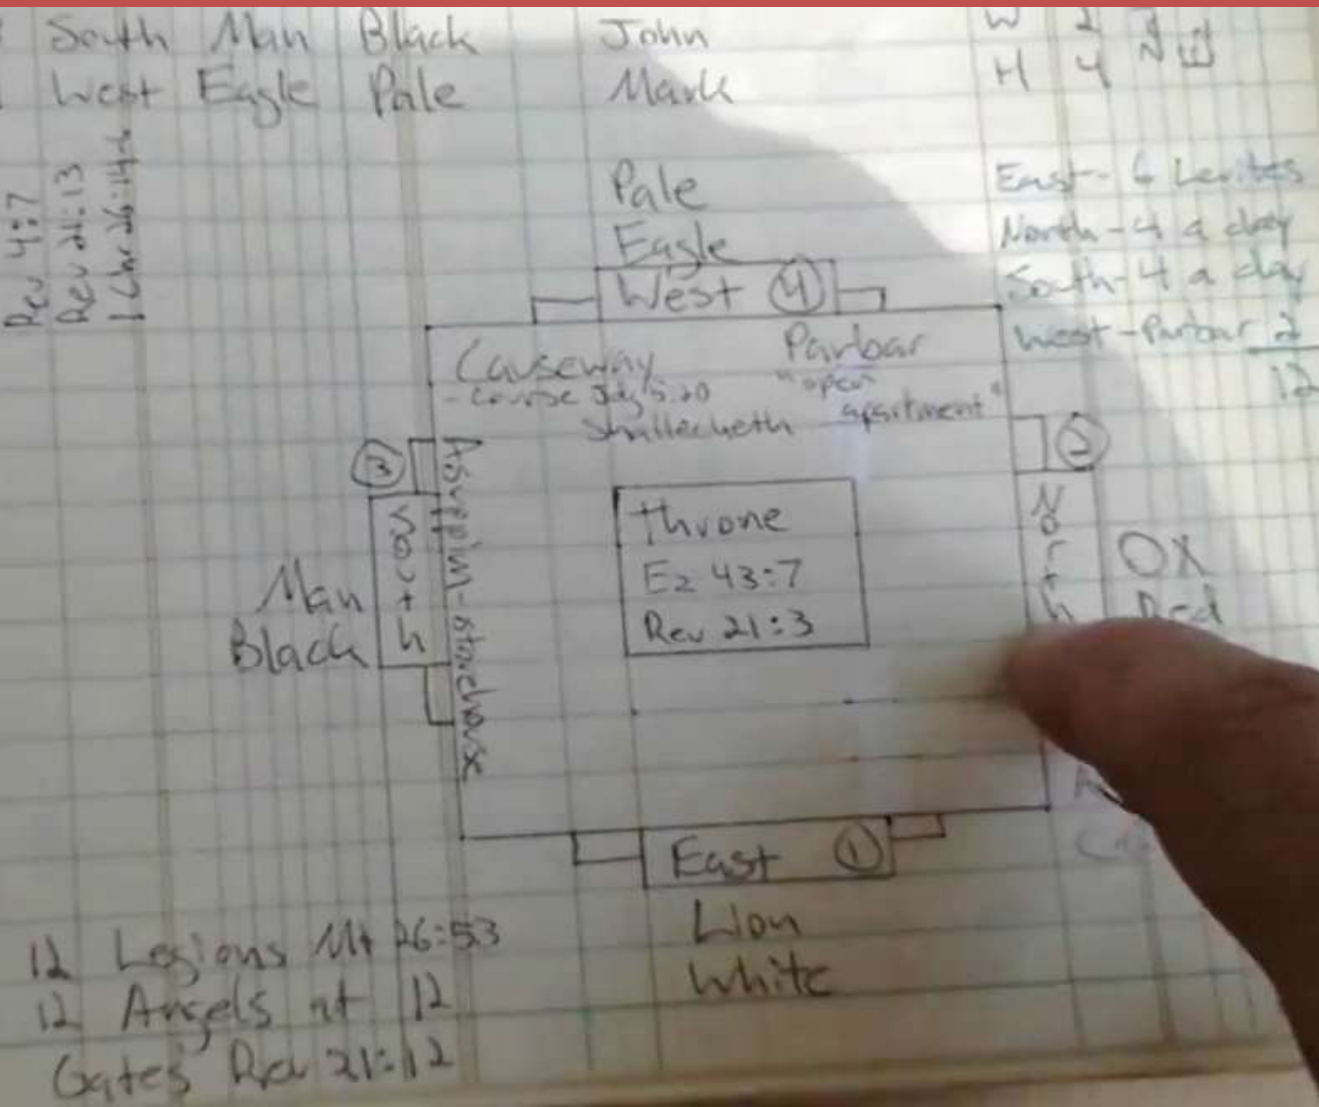 South Man Black John
West Eagle Pale Mark
W 2
H 4
Rev 4:7
Rev 21:13
1 Chr 26:14-
Pale
Eagle
West 4
East - 6 Levites
North - 4 a day
South - 4 a day
West - Parbar 2
12
Causeway
Parbar
"open
apartment"
- course Jdg 5:20
Shallecheth
3
South
Asuppim-storehouse
Man
Black
throne
Ez 43:7
Rev 21:3
2
North
OX
Red
East 1
Lion
White
12 Legions Mt 26:53
12 Angels at 12
Gates Rev 21:12